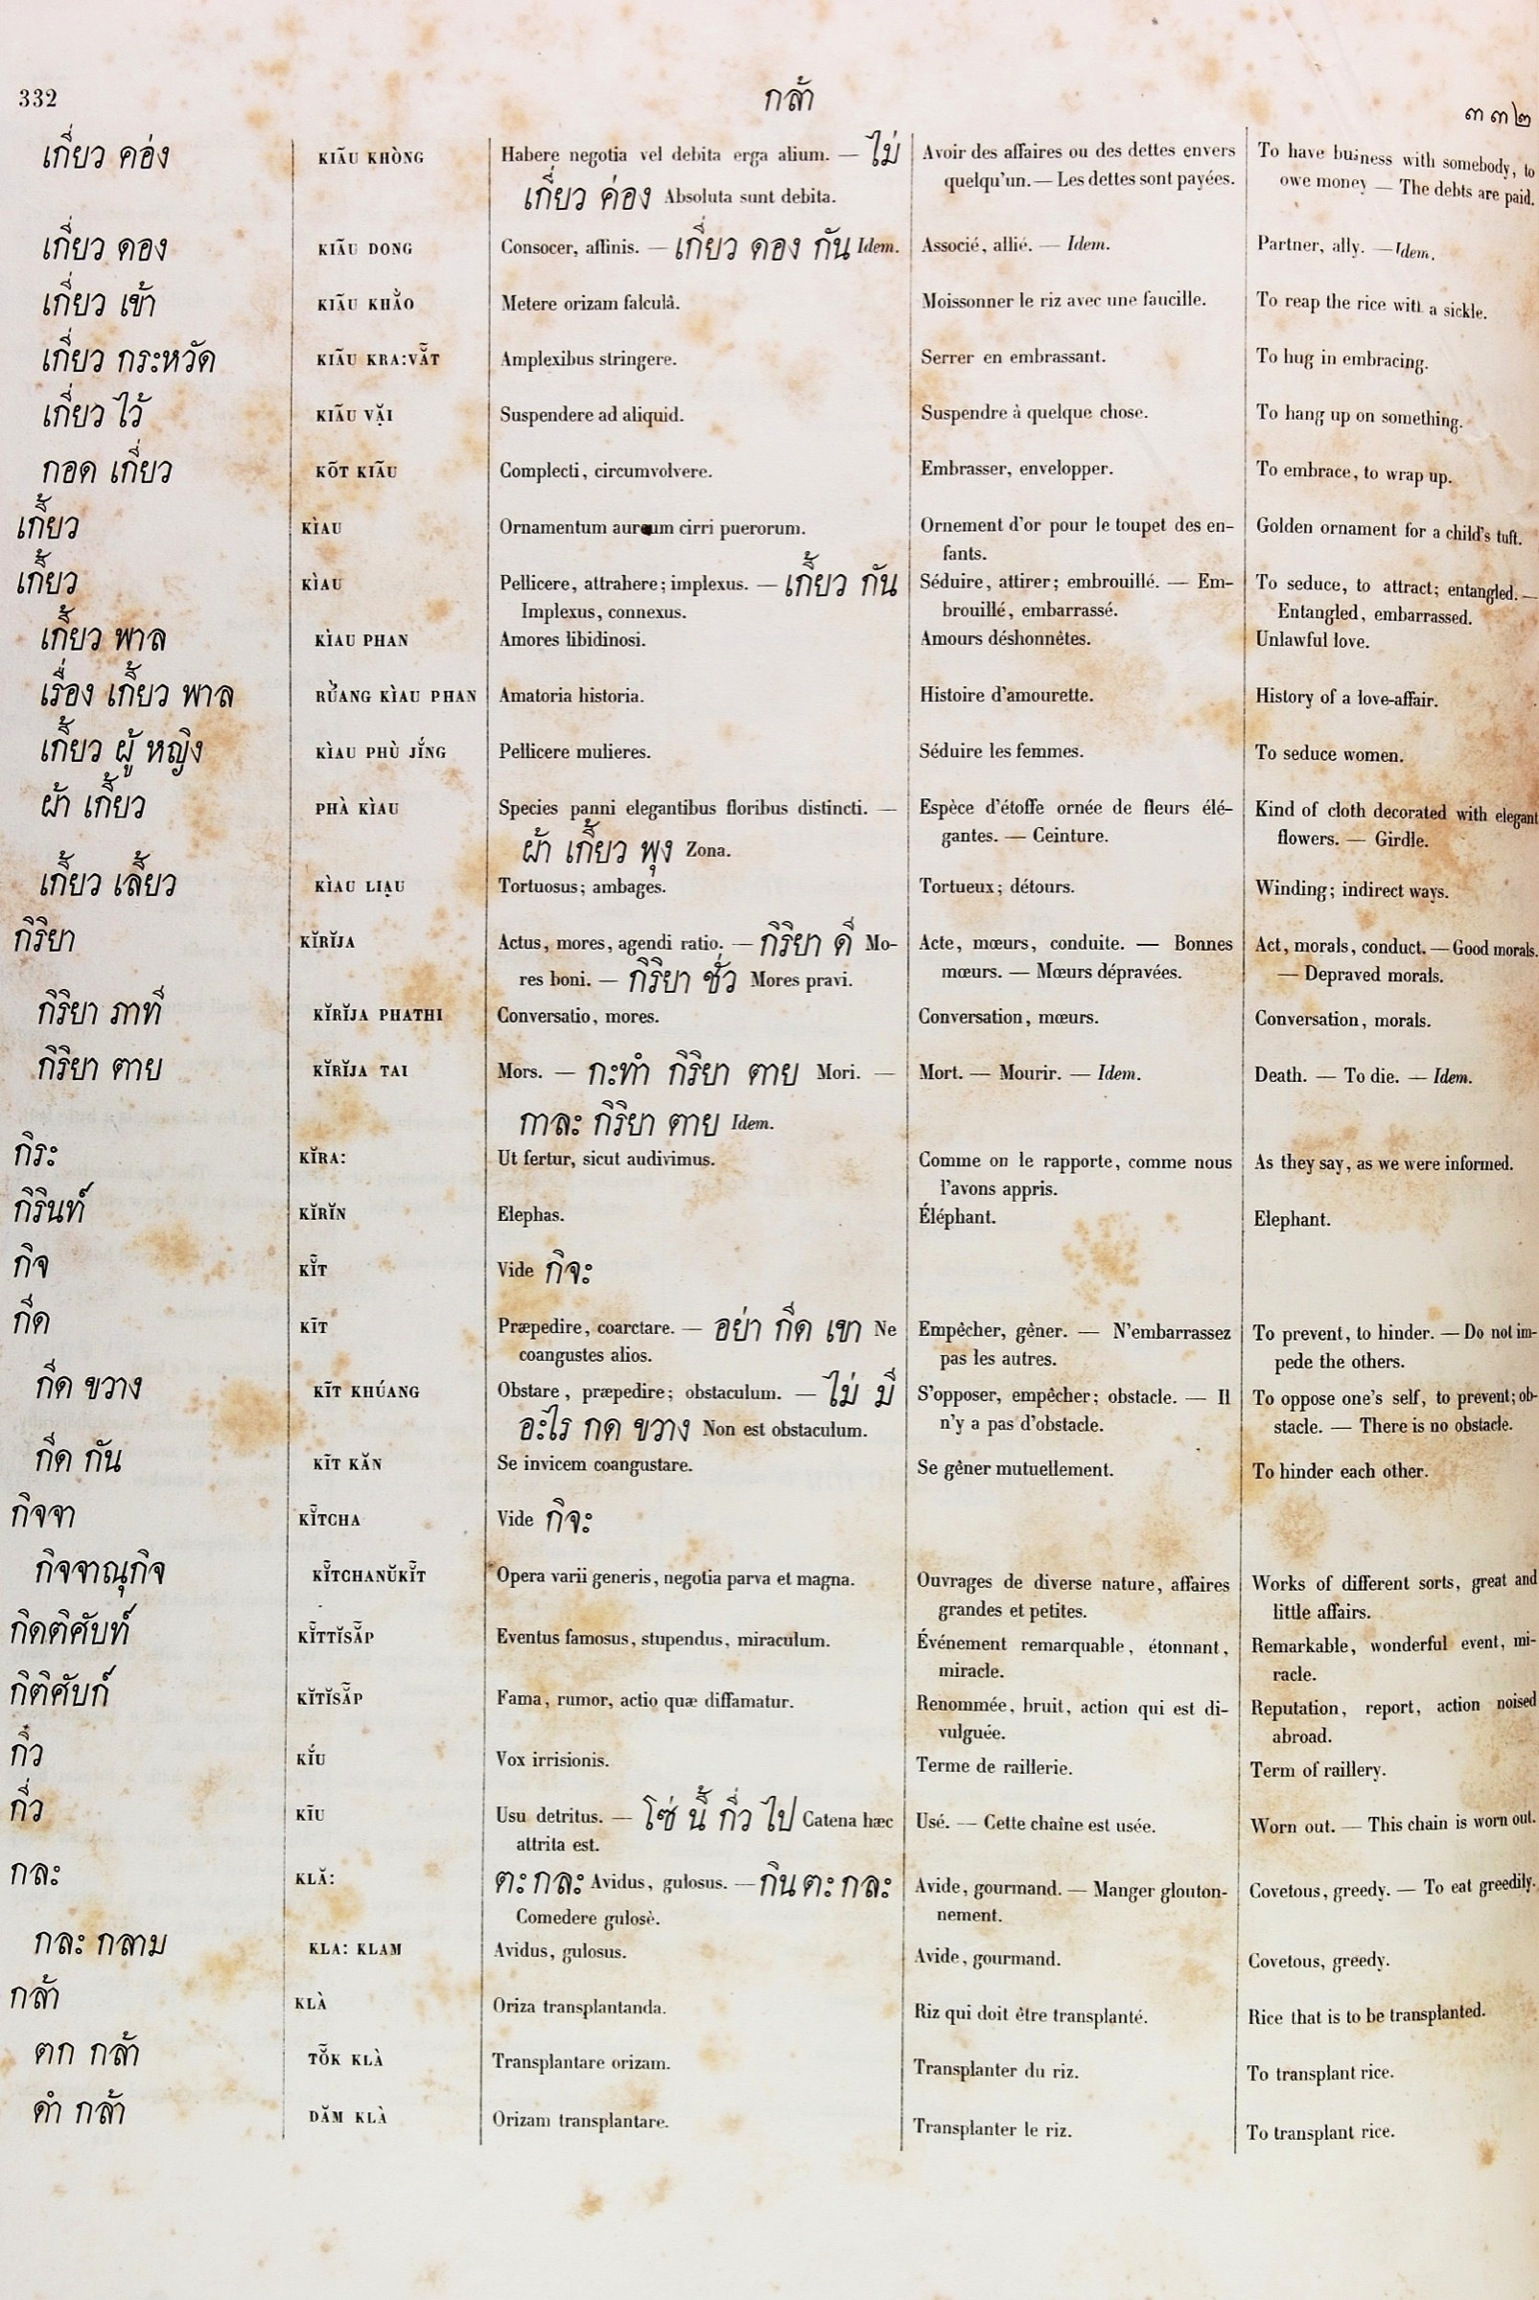 332
กล้า
๓๓๒
เกี่ยว ค่อง KIÃU KHÒNG Habere negotia vel debita erga alium. — ไม่ Avoir des affaires ou des dettes envers To have business with somebody, to
เกี่ยว ค่อง Absoluta sunt debita. quelqu'un. — Les dettes sont payées. owe money — The debts are paid.
เกี่ยว ดอง KIÃU DONG Consocer, affinis. — เกี่ยว ดอง กัน Idem. Associé, allié. — Idem. Partner, ally. — Idem.
เกี่ยว เข้า KIÃU KHẲO Metere orizam falculâ. Moissonner le riz avec une faucille. To reap the rice with a sickle.
เกี่ยว กระหวัด KIÃU KRA:VẴT Amplexibus stringere. Serrer en embrassant. To hug in embracing.
เกี่ยว ไว้ KIÃU VẶI Suspendere ad aliquid. Suspendre à quelque chose. To hang up on something.
กอด เกี่ยว KÕT KIÃU Complecti, circumvolvere. Embrasser, envelopper. To embrace, to wrap up.
เกี้ยว KÌAU Ornamentum aureum cirri puerorum. Ornement d'or pour le toupet des en- Golden ornament for a child's tuft.
fants.
เกี้ยว KÌAU Pellicere, attrahere; implexus. — เกี้ยว กัน Séduire, attirer; embrouillé. — Em- To seduce, to attract; entangled. —
Implexus, connexus. brouillé, embarrassé. Entangled, embarrassed.
เกี้ยว พาล KÌAU PHAN Amores libidinosi. Amours déshonnêtes. Unlawful love.
เรื่อง เกี้ยว พาล RŬ̀ANG KÌAU PHAN Amatoria historia. Histoire d'amourette. History of a love-affair.
เกี้ยว ผู้ หญิง KÌAU PHÙ JĬ́NG Pellicere mulieres. Séduire les femmes. To seduce women.
ผ้า เกี้ยว PHÀ KÌAU Species panni elegantibus floribus distincti. — Espèce d'étoffe ornée de fleurs élé- Kind of cloth decorated with elegant
ผ้า เกี้ยว พุง Zona. gantes. — Ceinture. flowers. — Girdle.
เกี้ยว เลี้ยว KÌAU LIẠU Tortuosus; ambages. Tortueux; détours. Winding; indirect ways.
กิริยา KĬRĬJA Actus, mores, agendi ratio. — กิริยา ดี Mo- Acte, mœurs, conduite. — Bonnes Act, morals, conduct. — Good morals.
res boni. — กิริยา ชั่ว Mores pravi. mœurs. — Mœurs dépravées. — Depraved morals.
กิริยา ภาที KĬRĬJA PHATHI Conversatio, mores. Conversation, mœurs. Conversation, morals.
กิริยา ตาย KĬRĬJA TAI Mors. — กะทำ กิริยา ตาย Mori. — Mort. — Mourir. — Idem. Death. — To die. — Idem.
กาละ กิริยา ตาย Idem.
กิระ KĬRA: Ut fertur, sicut audivimus. Comme on le rapporte, comme nous As they say, as we were informed.
l'avons appris.
กิรินท์ KĬRĬN Elephas. Éléphant. Elephant.
กิจ KĬ̃T Vide กิจะ
กีด KĨT Præpedire, coarctare. — อย่า กีด เขา Ne Empêcher, gêner. — N'embarrassez To prevent, to hinder. — Do not im-
coangustes alios. pas les autres. pede the others.
กีด ขวาง KĨT KHÚANG Obstare, præpedire; obstaculum. — ไม่ มี S'opposer, empêcher; obstacle. — Il To oppose one's self, to prevent; ob-
อะไร กด ขวาง Non est obstaculum. n'y a pas d'obstacle. stacle. — There is no obstacle.
กีด กัน KĨT KĂN Se invicem coangustare. Se gêner mutuellement. To hinder each other.
กิจจา KĬ̃TCHA Vide กิจะ
กิจจาณุกิจ KĬ̃TCHANŬKĬ̃T Opera varii generis, negotia parva et magna. Ouvrages de diverse nature, affaires Works of different sorts, great and
grandes et petites. little affairs.
กิดติศับท์ KĬ̃TTĬSẴP Eventus famosus, stupendus, miraculum. Événement remarquable, étonnant, Remarkable, wonderful event, mi-
miracle. racle.
กิติศับท์ KĬTĬSẴP Fama, rumor, actio quæ diffamatur. Renommée, bruit, action qui est di- Reputation, report, action noised
vulguée. abroad.
กิ๋ว KĬ́U Vox irrisionis. Terme de raillerie. Term of raillery.
กิ่ว KĨU Usu detritus. — โซ่ นี้ กิ่ว ไป Catena hæc Usé. — Cette chaîne est usée. Worn out. — This chain is worn out.
attrita est.
กละ KLĂ: ตะกละ Avidus, gulosus. — กินตะกละ Avide, gourmand. — Manger glouton- Covetous, greedy. — To eat greedily.
Comedere gulosè. nement.
กละ กลาม KLA: KLAM Avidus, gulosus. Avide, gourmand. Covetous, greedy.
กล้า KLÀ Oriza transplantanda. Riz qui doit être transplanté. Rice that is to be transplanted.
ตก กล้า TÕ̆K KLÀ Transplantare orizam. Transplanter du riz. To transplant rice.
ดำ กล้า DĂM KLÀ Orizam transplantare. Transplanter le riz. To transplant rice.